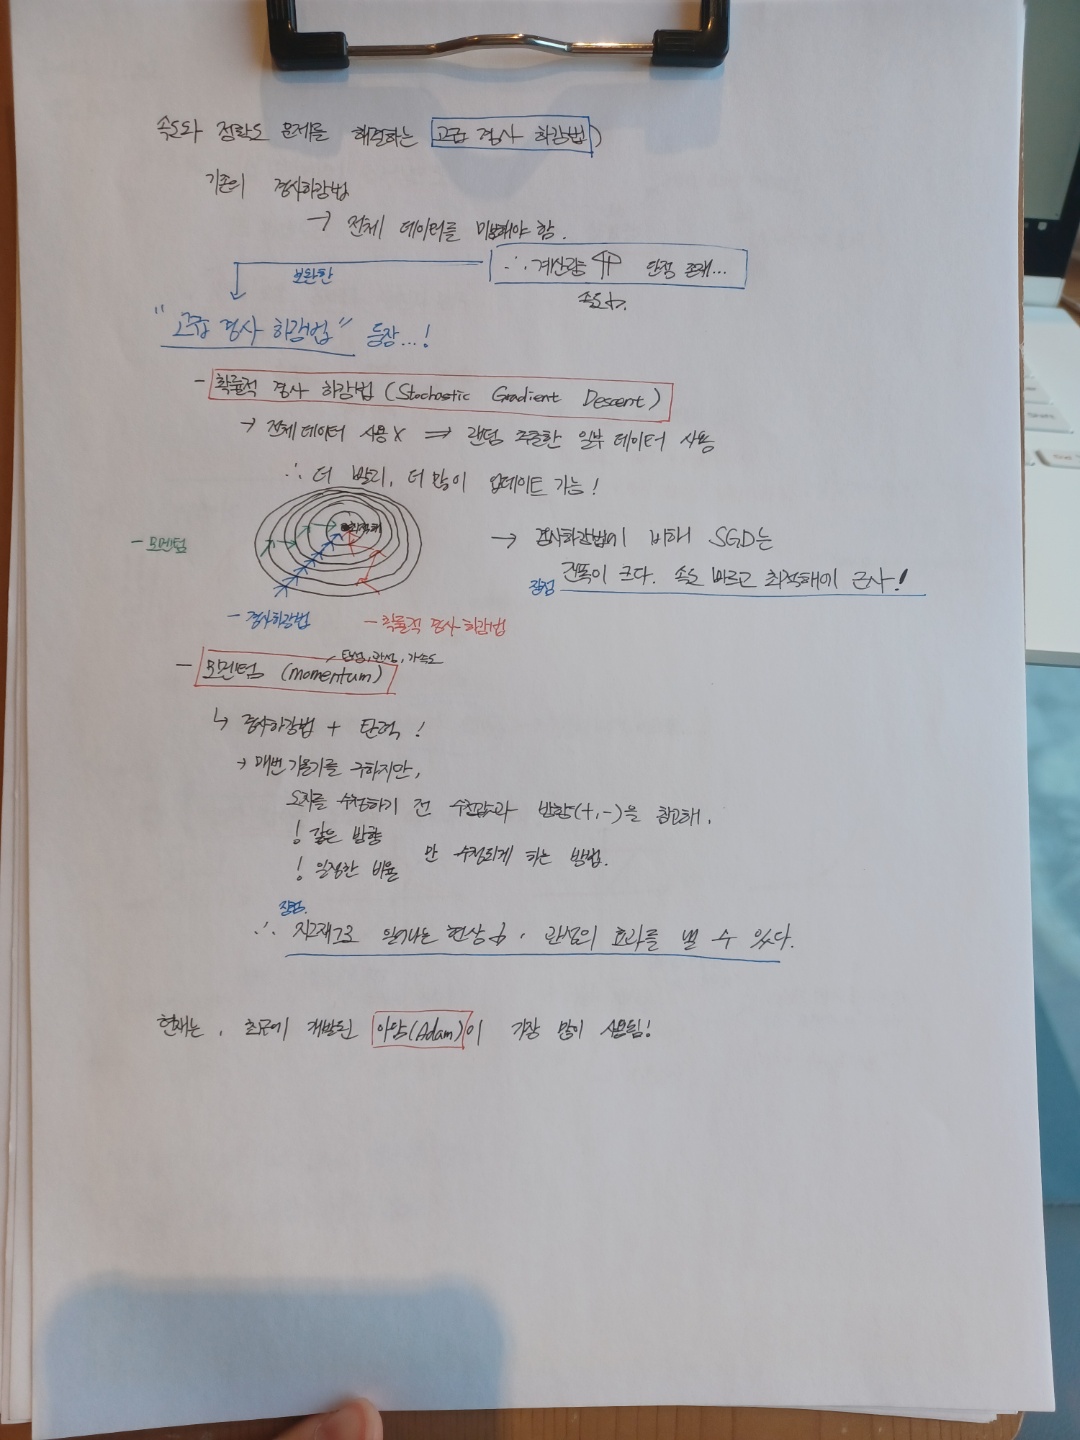 속도와 정확도 문제를 해결하는 고급 경사 하강법)
기존의 경사하강법
→ 전체 데이터를 미분해야 함.
∴ 계산량 ⇑ 단점 존재...
속도↓.
보완한
"고급 경사 하강법" 등장...!
- 확률적 경사 하강법 (Stochastic Gradient Descent)
→ 전체 데이터 사용 X ⇒ 랜덤 추출한 일부 데이터 사용
∴ 더 빨리, 더 많이 업데이트 가능!
최적해
- 모멘텀
→ 경사하강법에 비해 SGD는
장점 진폭이 크다. 속도 빠르고 최적해에 근사!
- 경사하강법
- 확률적 경사 하강법
탄성, 관성, 가속도
- 모멘텀 (momentum)
↳ 경사하강법 + 탄력!
→ 매번 기울기를 구하지만,
오차를 수정하기 전 수정값과 방향(+,-)을 참고해,
! 같은 방향
! 일정한 비율 만 수정되게 하는 방법.
장점.
∴ 지그재그로 일어나는 현상↓, 관성의 효과를 낼 수 있다.
현재는, 최근에 개발된 아담(Adam)이 가장 많이 사용됨!